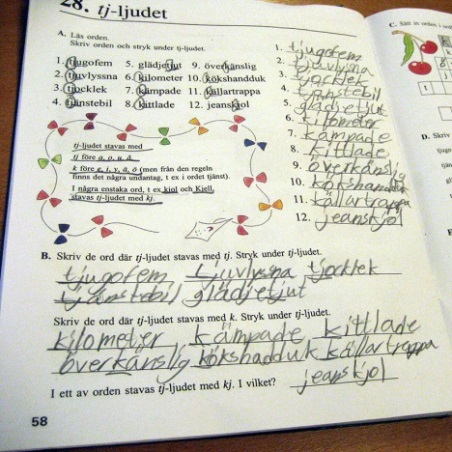 28. tj-ljudet
A. Läs orden.
Skriv orden och stryk under tj-ljudet.
1. tjugofem 5. glädjetjut 9. överkänslig
2. tjuvlyssna 6. kilometer 10. kökshandduk
3. tjocklek 7. kämpade 11. källartrappa
4. tjänstebil 8. kittlade 12. jeanskjol
1. tjugofem
2. tjuvlyssna
3. tjocklek
4. tjänstebil
5. glädjetjut
6. kilometer
7. kämpade
8. kittlade
9. överkänslig
10. kökshandduk
11. källartrappa
12. jeanskjol
tj-ljudet stavas med
tj före a, o, u, å
k före e, i, y, ä, ö (men från den regeln
finns det några undantag, t ex i ordet tjänst).
I några enstaka ord, t ex kjol och Kjell,
stavas tj-ljudet med kj.
B. Skriv de ord där tj-ljudet stavas med tj. Stryk under tj-ljudet.
tjugofem tjuvlyssna tjocklek
tjänstebil glädjetjut
Skriv de ord där tj-ljudet stavas med k. Stryk under tj-ljudet.
kilometer kämpade kittlade
överkänslig kökshadduk källartrappa
I ett av orden stavas tj-ljudet med kj. I vilket? jeanskjol
58
C. Sätt in orden i
D. Skriv